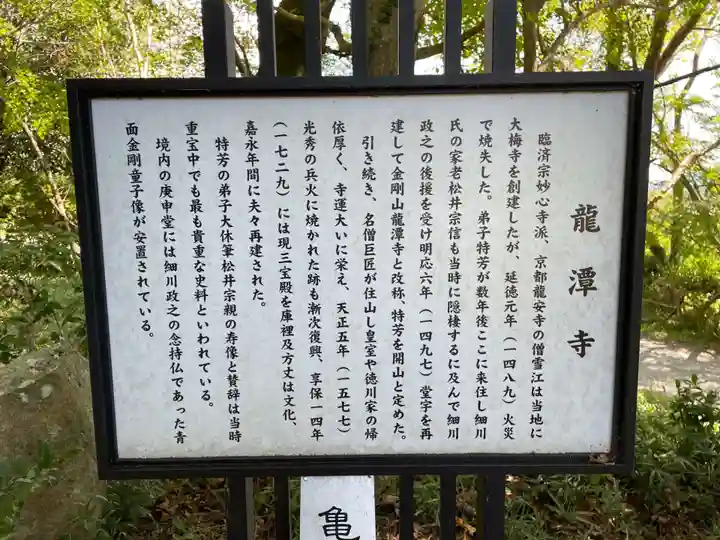 龍潭寺
臨済宗妙心寺派、京都龍安寺の僧雪江は当地に
大梅寺を創建したが、延徳元年(一四八九)火災
で焼失した。弟子特芳が数年後ここに来住し細川
氏の家老松井宗信も当時に隠棲するに及んで細川
政之の後援を受け明応六年(一四九七)堂宇を再
建して金剛山龍潭寺と改称、特芳を開山と定めた。
引き続き、名僧巨匠が住山し皇室や徳川家の帰
依厚く、寺運大いに栄え、天正五年(一五七七)
光秀の兵火に焼かれた跡も漸次復興、享保一四年
(一七二九)には現三宝殿を庫裡及方丈は文化、
嘉永年間に夫々再建された。
特芳の弟子大休筆松井宗親の寿像と賛辞は当時
重宝中でも最も貴重な史料といわれている。
境内の庚申堂には細川政之の念持仏であった青
面金剛童子像が安置されている。
亀